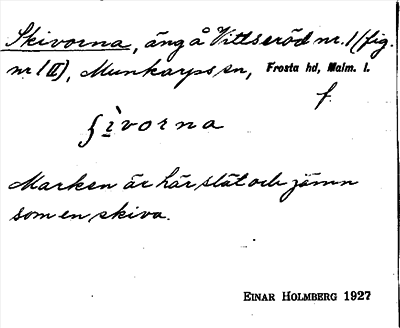 Skivorna, äng å Vittseröd nr. 1 (fig.
nr 1 II), Munkarps sn, Frosta hd, Malm. l.
f.
ʃìvorna
Marken är här slät och jämn
som en skiva.
EINAR HOLMBERG 1927